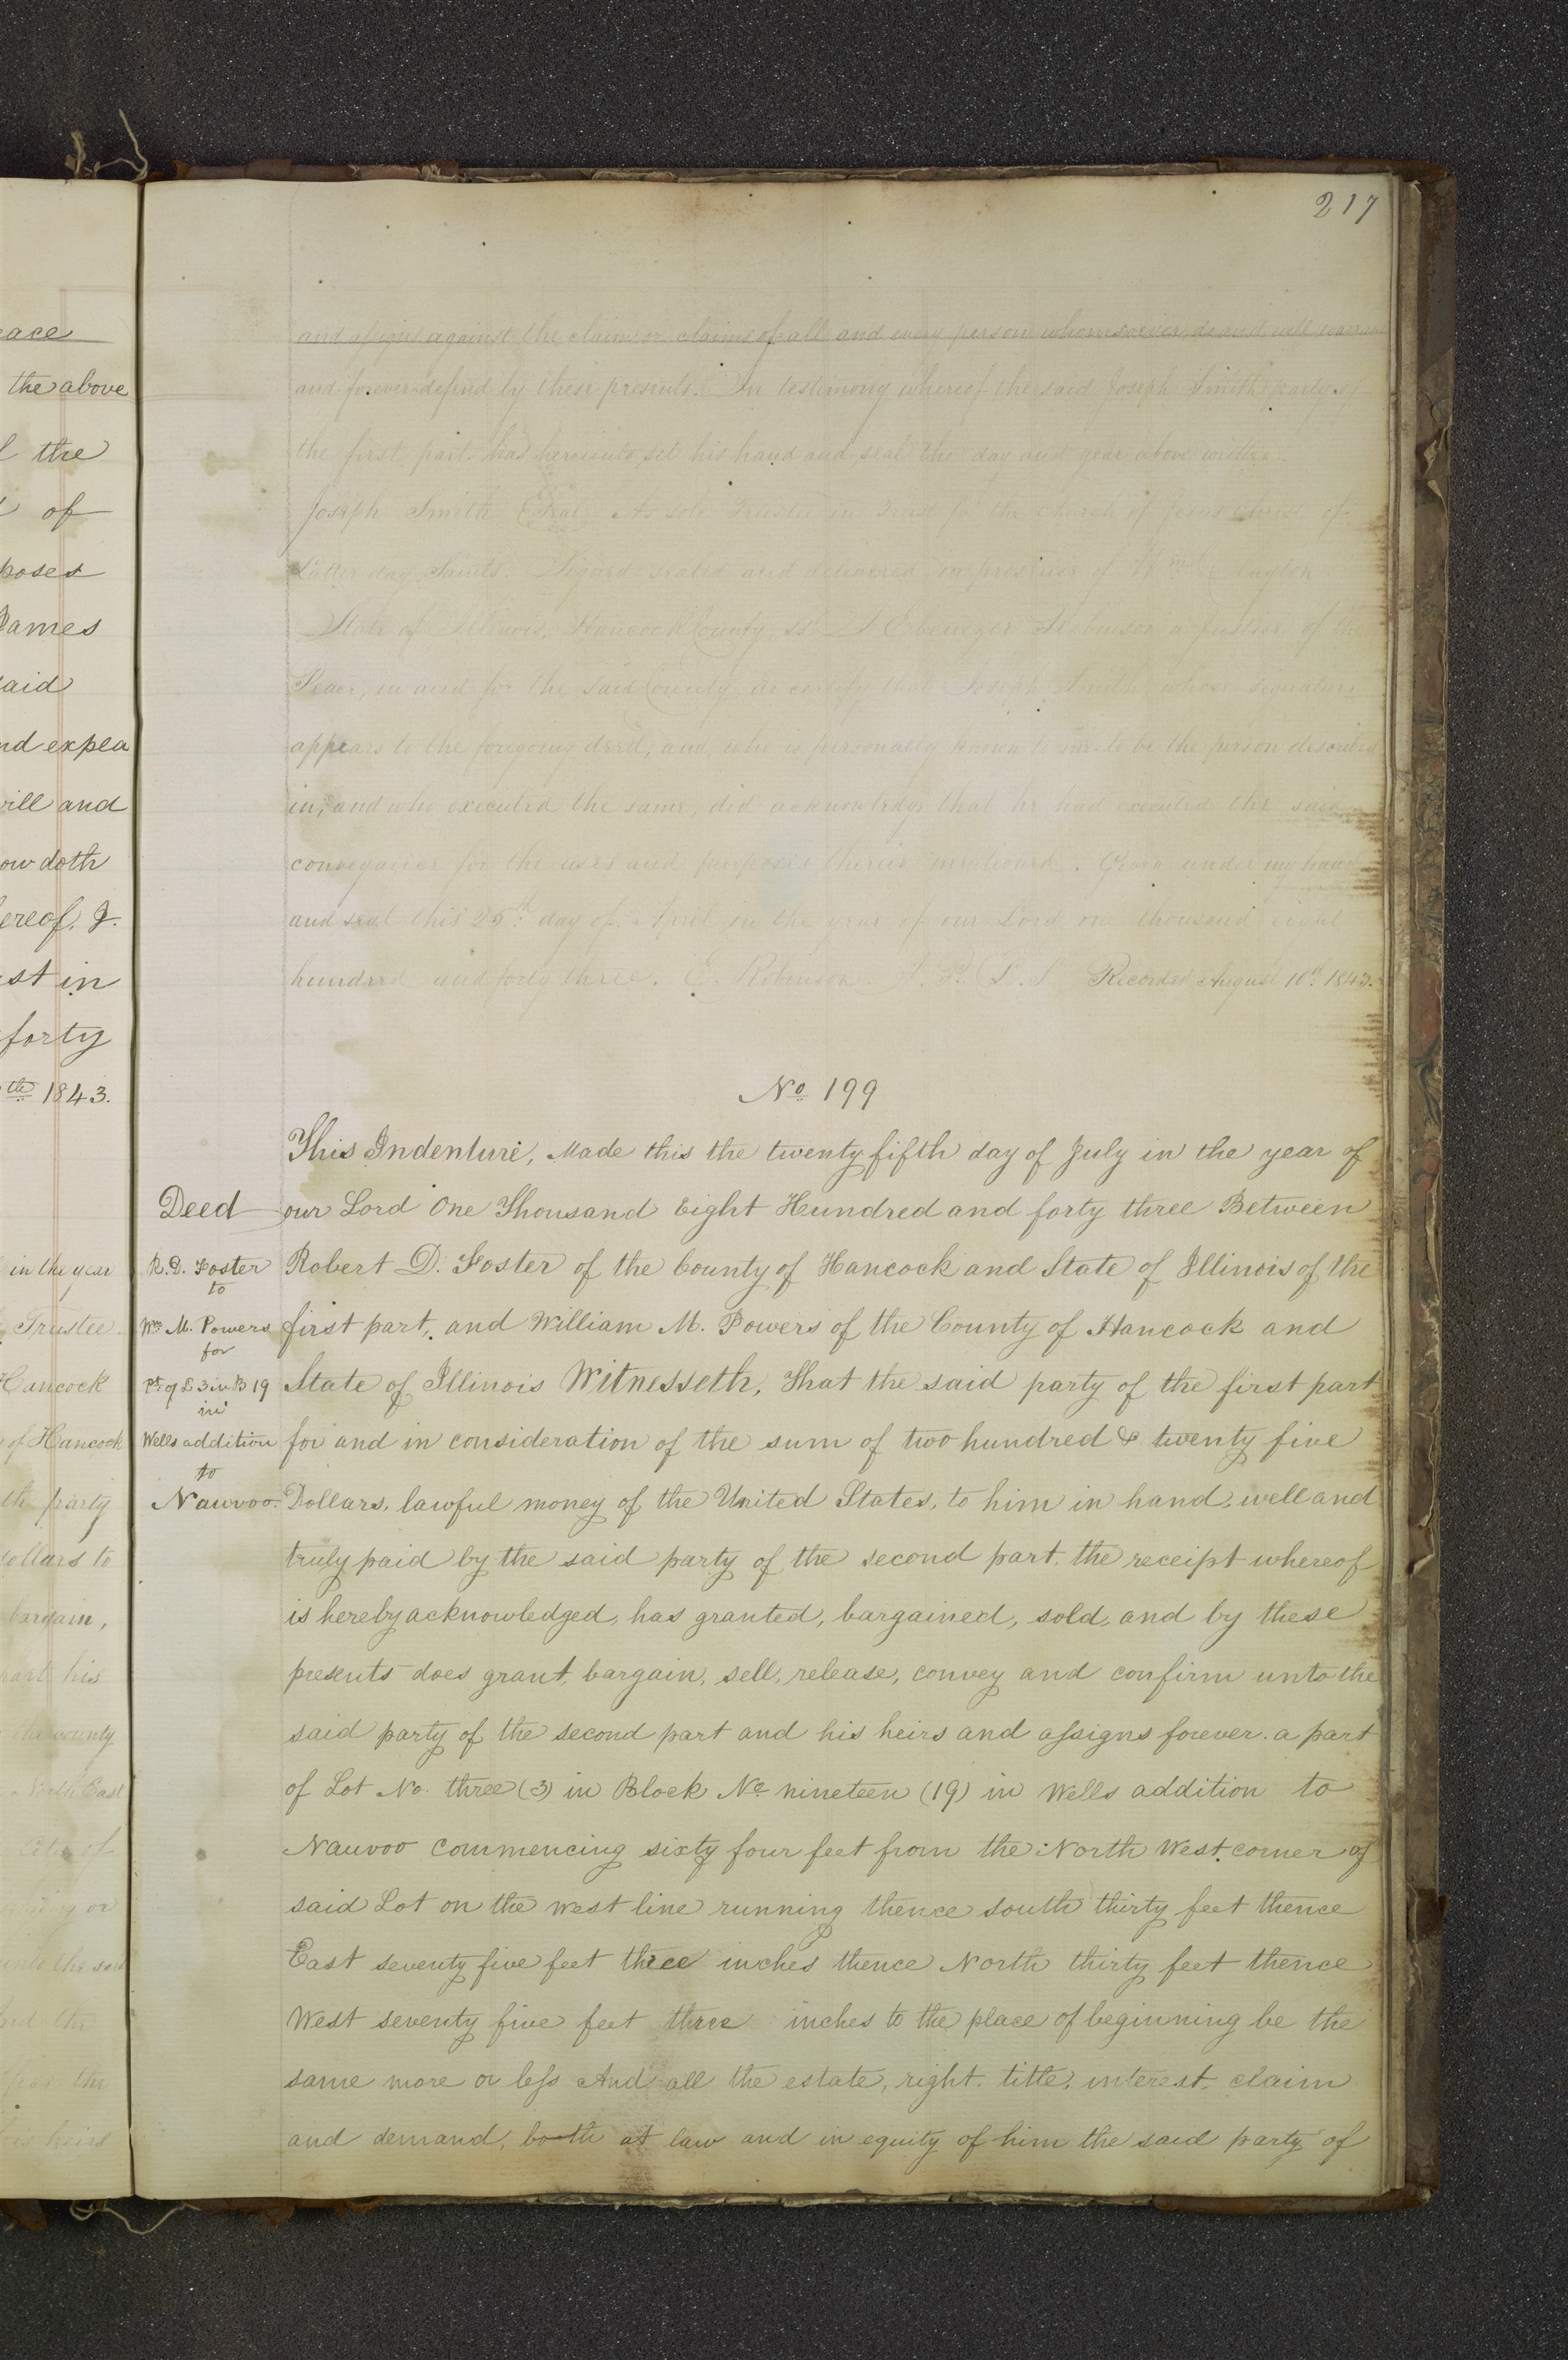 217
and assigns against the claim or claims of all and every person whomsoever, do and will warrant
and forever defend by these presents. In testimony whereof the said Joseph Smith party of
the first part has hereunto set his hand and seal the day and year above written.
Joseph Smith Seal As sole in trust for the Church of Jesus Christ of
Latter day Saints. Signed sealed and delivered in presence of Wm Clayton
State of Illinois, Hancock County ss I Ebenezer Robinson a justice of the
Peace, in and for the said County do certify that Joseph Smith whose signature
appears to the foregoing deed, and who is personally known to me to be the person described
in, and who executed the same, did acknowledge that he had executed the said
conveyance for the uses and purposes therein mentioned. Given under my hand
and seal this 25th day of April in the year of our Lord one thousand eight
hundred and forty three. E. Robinson J. P. L. S. Recorded August 10th 1843.
No 199
This Indenture, Made this the twenty fifth day of July in the year of
Deed
our Lord One Thousand Eight Hundred and forty three Between
R. D. Foster
to
Robert D. Foster of the County of Hancock and State of Illinois of the
Wm M. Powers
for
first part, and William M. Powers of the County of Hancock and
Pt of L 3 in B 19
in
State of Illinois Witnesseth, That the said party of the first part
Wells addition
to
for and in consideration of the sum of two hundred & twenty five
Nauvoo.
Dollars, lawful money of the United States, to him in hand, well and
truly paid by the said party of the second part, the receipt whereof
is hereby acknowledged, has granted, bargained, sold, and by these
presents does grant, bargain, sell, release, convey and confirm unto the
said party of the second part and his heirs and assigns forever. a part
of Lot No. three (3) in Block No nineteen (19) in Wells addition to
Nauvoo commencing sixty four feet from the North West corner of
said Lot on the west line running thence south thirty feet thence
East seventy five feet three inches thence North thirty feet thence
West seventy five feet three inches to the place of beginning be the
same more or less And all the estate, right, title, interest, claim
and demand, both at law and in equity of him the said party of
the above
the
of
poses
James
said
nd expea
will and
ow doth
ereof, J.
st in
forty
th 1843.
in the year
Trustee
Hancock
of Hancock
th party
dollars to
bargain,
part his
the county
North East
City of
or
unto the said
and the
the
heirs